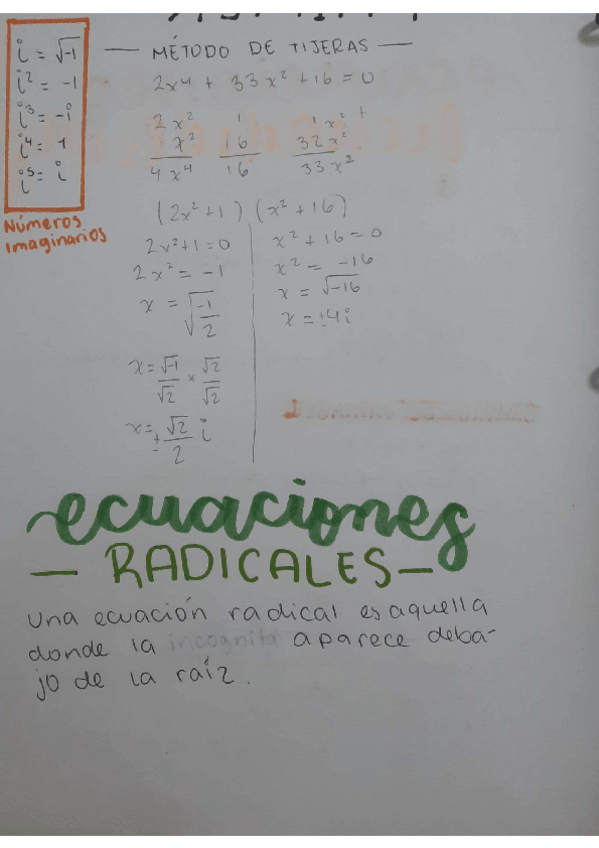 i = √-1
i² = -1
i³ = -i
i⁴ = 1
i⁵ = i
Números
Imaginarios
— MÉTODO DE TIJERAS —
2x⁴ + 33x² + 16 = 0
2x² 1 1x² +
x² 16 32x²
4x⁴ 16 33x²
(2x² + 1) (x² + 16)
2x² + 1 = 0
2x² = -1
x = √-1/2
x = √-1/√2 × √2/√2
x = ± √2/2 i
x² + 16 = 0
x² = -16
x = √-16
x = ±4i
ecuaciones
— RADICALES —
Una ecuación radical es aquella
donde la incognita aparece deba-
jo de la raíz.